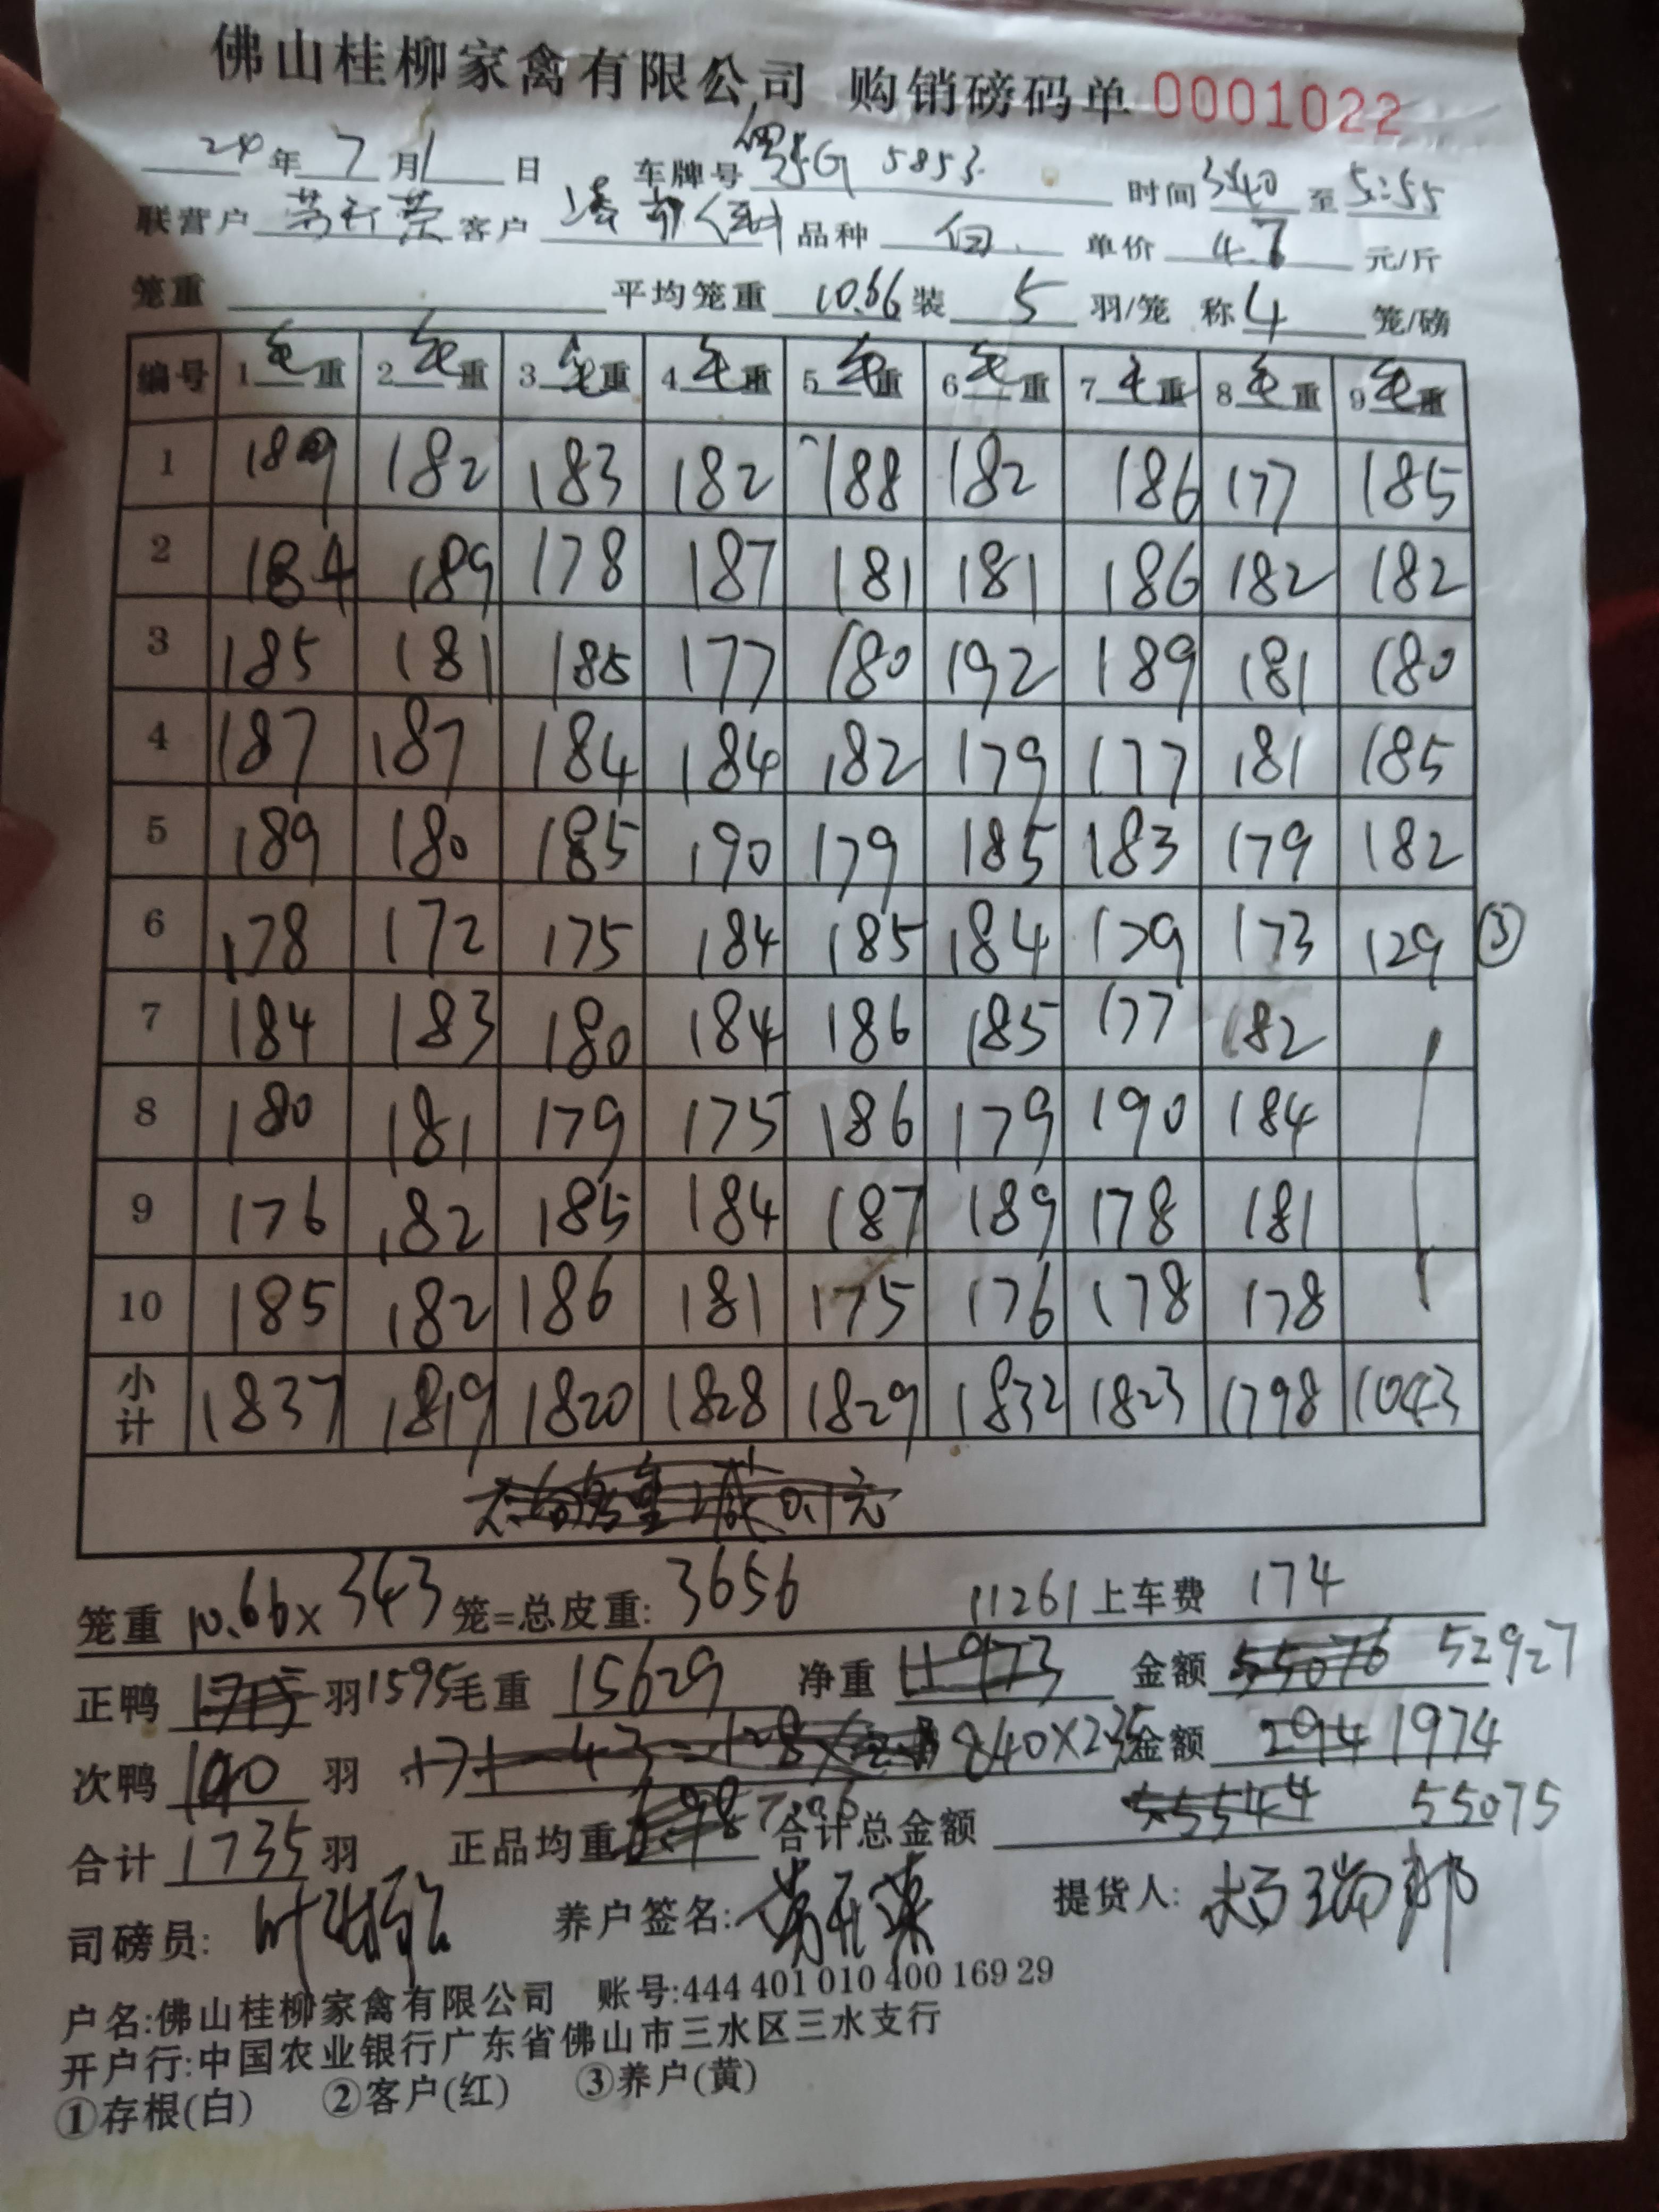 佛山桂柳家禽有限公司 购销磅码单 0001022
24年7月1日 车牌号 G5853 时间3:40至5:55
联营户 客户 品种 白 单价 4.7 元/斤
笼重 平均笼重 10.66 装 5 羽/笼 称 4 笼/磅
编号 1毛重 2毛重 3毛重 4毛重 5毛重 6毛重 7毛重 8毛重 9毛重
1 189 182 183 182 188 182 186 177 185
2 184 189 178 187 181 181 186 182 182
3 185 181 185 177 180 192 189 181 180
4 187 187 184 184 182 179 177 181 185
5 189 180 185 190 179 185 183 179 182
6 178 172 175 184 185 184 179 173 129 ③
7 184 183 180 184 186 185 177 182
8 180 181 179 175 186 179 190 184
9 176 182 185 184 187 189 178 181
10 185 182 186 181 175 176 178 178
小计 1837 1819 1820 1828 1829 1832 1823 1798 1043
0.1元
笼重 10.66×343 笼=总皮重: 3656 11261 上车费 174
正鸭 1715 羽 1595 毛重 15629 净重 11973 金额 55076 52927
次鸭 140 羽 840×235 金额 294 1974
合计 1735 羽 正品均重 6.98 7.06 合计总金额 55544 55075
司磅员: 养户签名: 提货人:
户名:佛山桂柳家禽有限公司 账号:444 401 010 400 169 29
开户行:中国农业银行广东省佛山市三水区三水支行
①存根(白) ②客户(红) ③养户(黄)